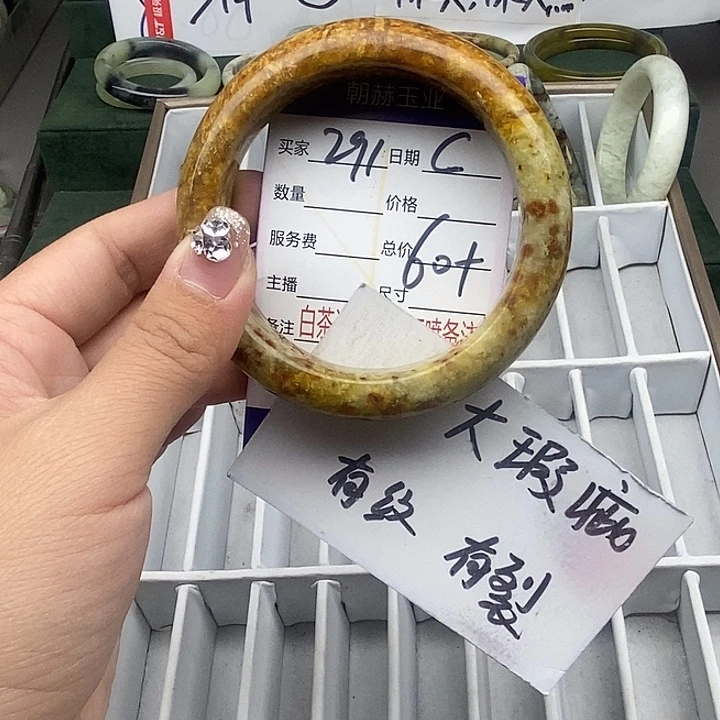 朝赫玉业
买家 291 日期 C
数量 价格
服务费 总价 60+
主播 尺寸
备注 白茶
大瑕疵
有纹
有裂